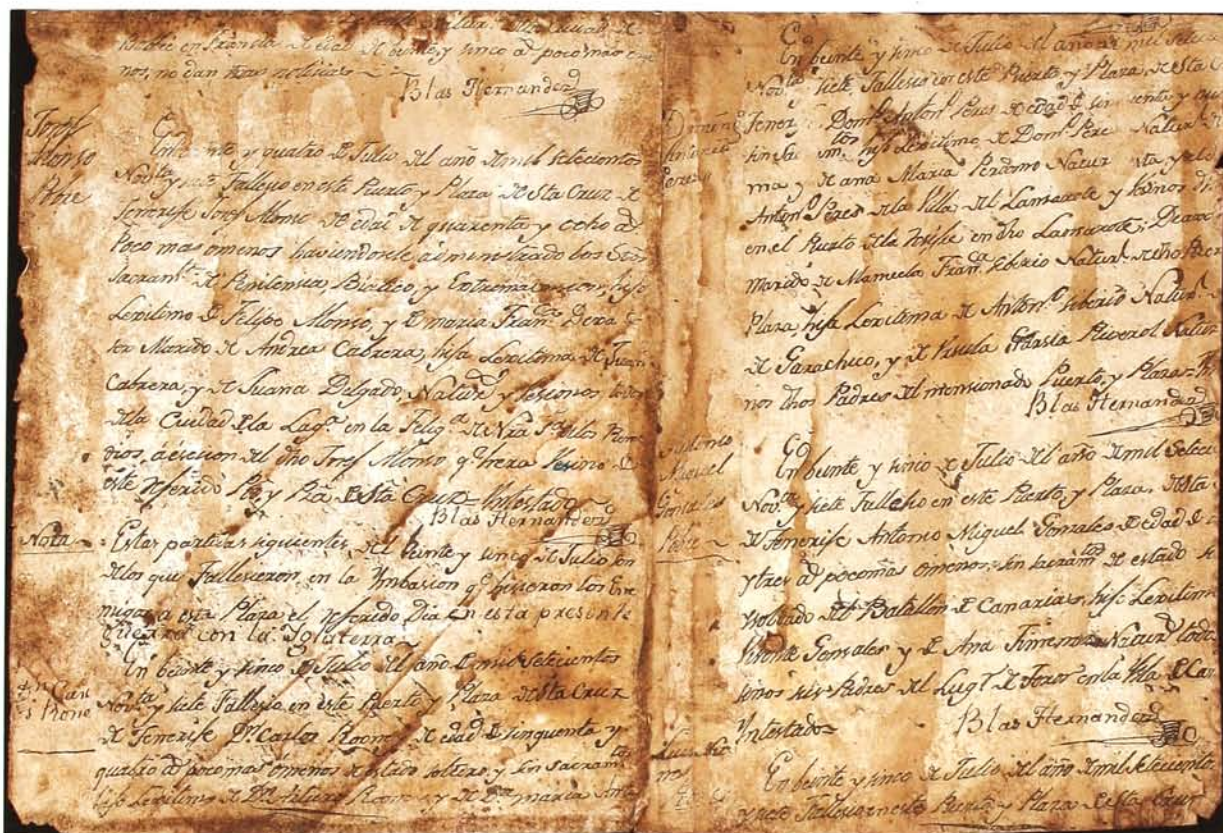 Badee en Francia de edad de beinte, y sinco as poco mas o me
nos, no dan mas notisias
Blas Hernandez
Josef
Alonso
Pobre
En beinte y quatro de Julio del año de mil setecientos
Nov.ta y siete Fallesio en este Puerto y Plaza de Sta Cruz de
Tenerife Josef Alonso de edad de quarenta y ocho as
Poco mas o menos haviendosele administrado los Stos
Sacram.tos de Penitensia Biatico, y Extremauncion, hijo
Lexitimo de Felipe Alonso, y de maria Fran.ca
Marido de Andrea Cabrera, hija Lexitima de Juan
Cabrera, y de Juana Delgado, Natur.s y Vesinos todos
dela Ciudad de la Lag.a en la Felig.a de Nra S.a delos Reme
dios, a ecsesion del dho Josef Alonso q.e hera Vesino de
este referido Pto y Pza de Sta Cruz Intestado
Blas Hernandez
Nota
Estas partidas siguientes del beinte y sinco de Julio son
delos que Fallesieron en la Ymbasion q.e hisieron los Ene
migos a esta Plaza el referido Dia en esta presente
guerra con la Ynglaterra
D.n Car
s Rone
En beinte y sinco de Julio del año de mil setecientos
Nov.ta y siete Fallesio en este Puerto y Plaza de Sta Cruz
de Tenerife D.n Carlos Roone de edad de sinquenta y
quatro as poco mas o menos de estado soltero, y sin sacram.tos
hijo Lexitimo de D.n Arturo Roone, y de D.ña maria
En beinte y sinco de Julio del año de mil setecie
Nov.ta y siete Fallesio en este Puerto y Plaza de Sta C
Doming.o
Antonio
Peres
Tener Dom.o Anton.o Peres de edad de sinquenta y
sin Sacram.tos hijo Lexitimo de Dom.o Peres Natur.l de
ma y de ana Maria Perdomo Natur
Anton.o Peres dela Villa del Lansarote y Vesinos
en el Puerto dela Resife en dho Lansarote;
Marido de Manuela Fran.ca Natur.l de dho Puer
Plaza, hija Lexitima de Anton.o Natur.l
de Garachico, y de Ursula Garsia Riverol Natur
nos dhos Padres del mensionado Puerto, y Plaza
Blas Hernandez
Antonio
Miguel
Gonsales
Pobre
En beinte y sinco de Julio del año de mil setecie
Nov.ta y siete Fallesio en este Puerto, y Plaza, de Sta
de Tenerife Antonio Miguel Gonzales de edad de
y tres as poco mas o menos, sin sacram.tos de estado so
y soldado del Batallon de Canarias, hijo Lexitimo
Visente Gonsales y de Ana Natur.s todos
sinos sus Padres del Lug.r de Toror en la Ysla de Can
Yntestado
Blas Hernandez
En beinte y sinco de Julio del año de mil setecientos
y siete Fallesio en este Puerto y Plaza de Sta Cruz